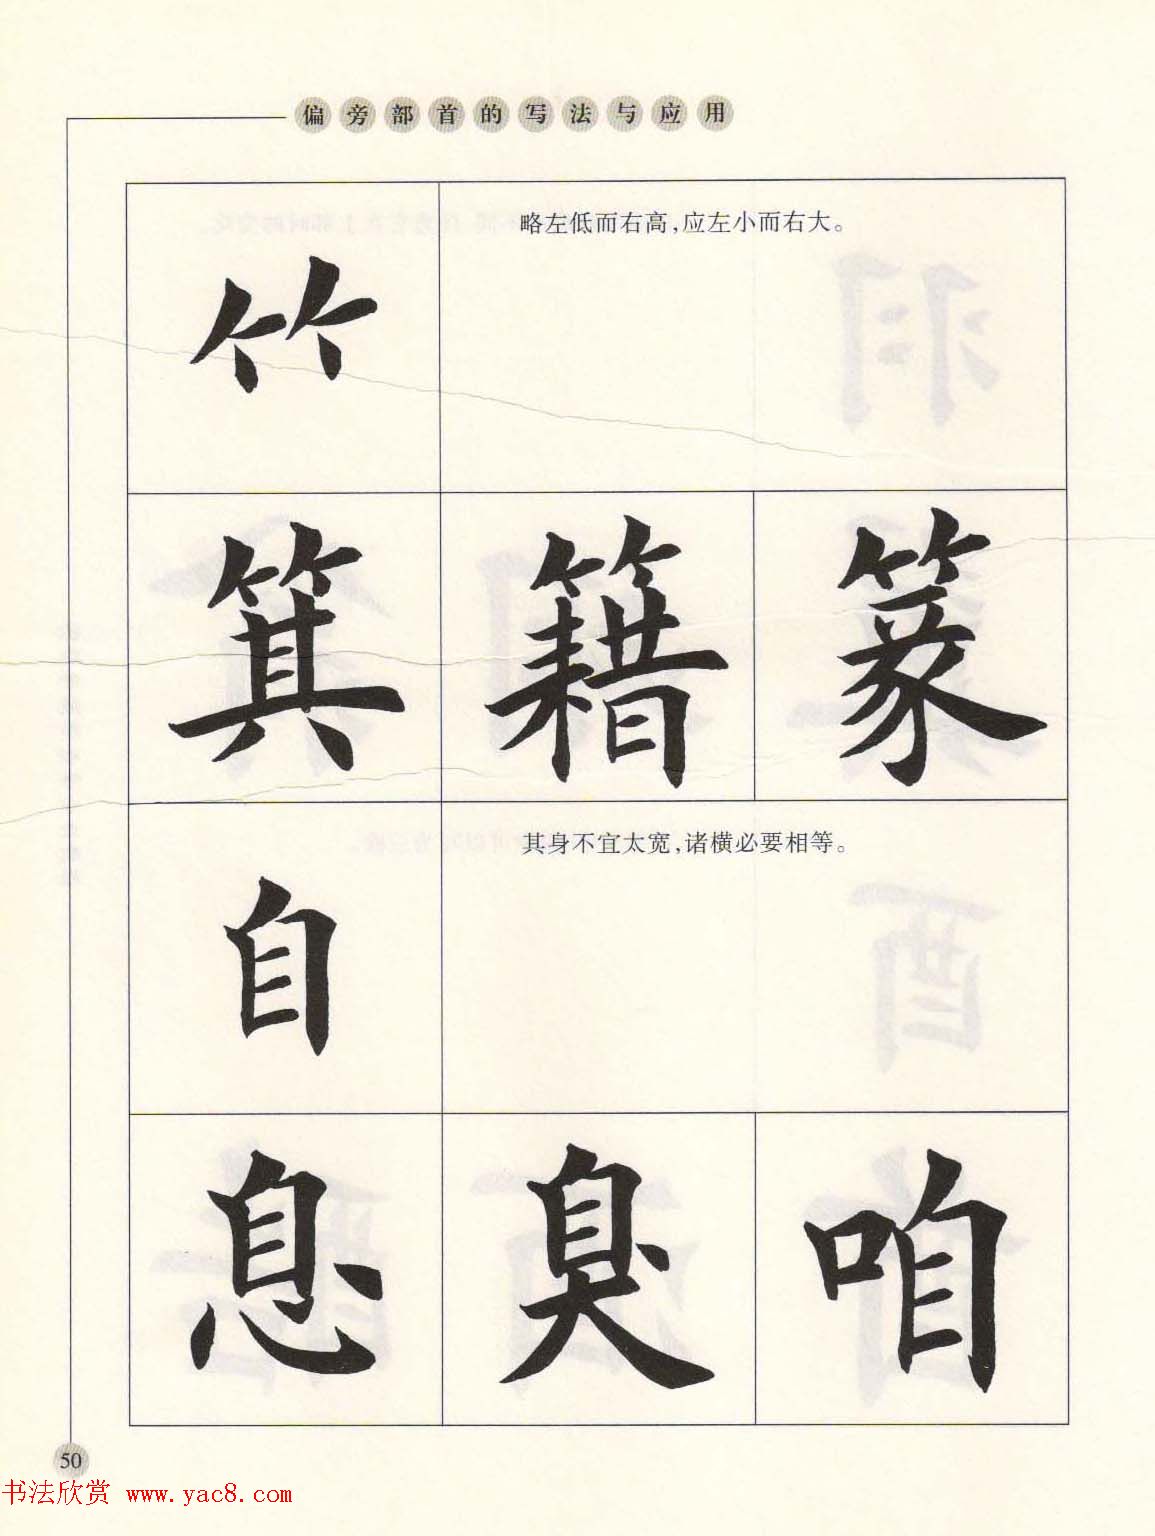 偏旁部首的写法与应用
竹
略左低而右高,应左小而右大。
箕 籍 篆
自
其身不宜太宽,诸横必要相等。
息 臭 咱
50
书法欣赏 www.yac8.com